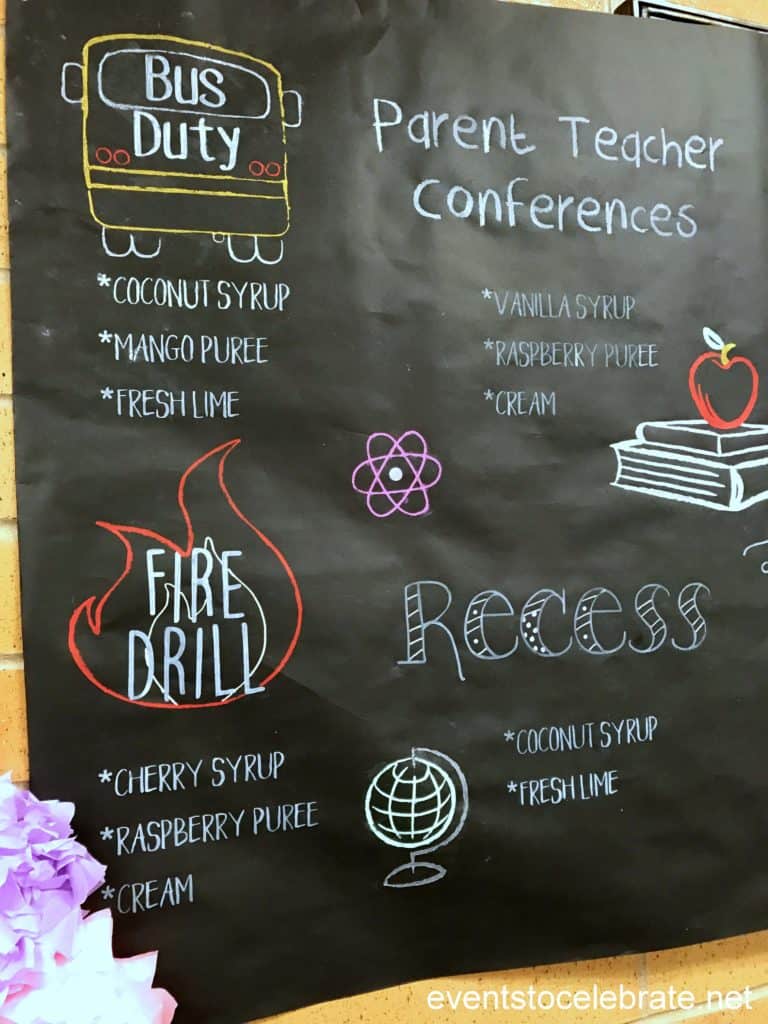 Bus
Duty
*COCONUT SYRUP
*MANGO PUREE
*FRESH LIME
Parent Teacher
Conferences
*VANILLA SYRUP
*RASPBERRY PUREE
*CREAM
FIRE
DRILL
*CHERRY SYRUP
*RASPBERRY PUREE
*CREAM
Recess
*COCONUT SYRUP
*FRESH LIME
eventstocelebrate.net